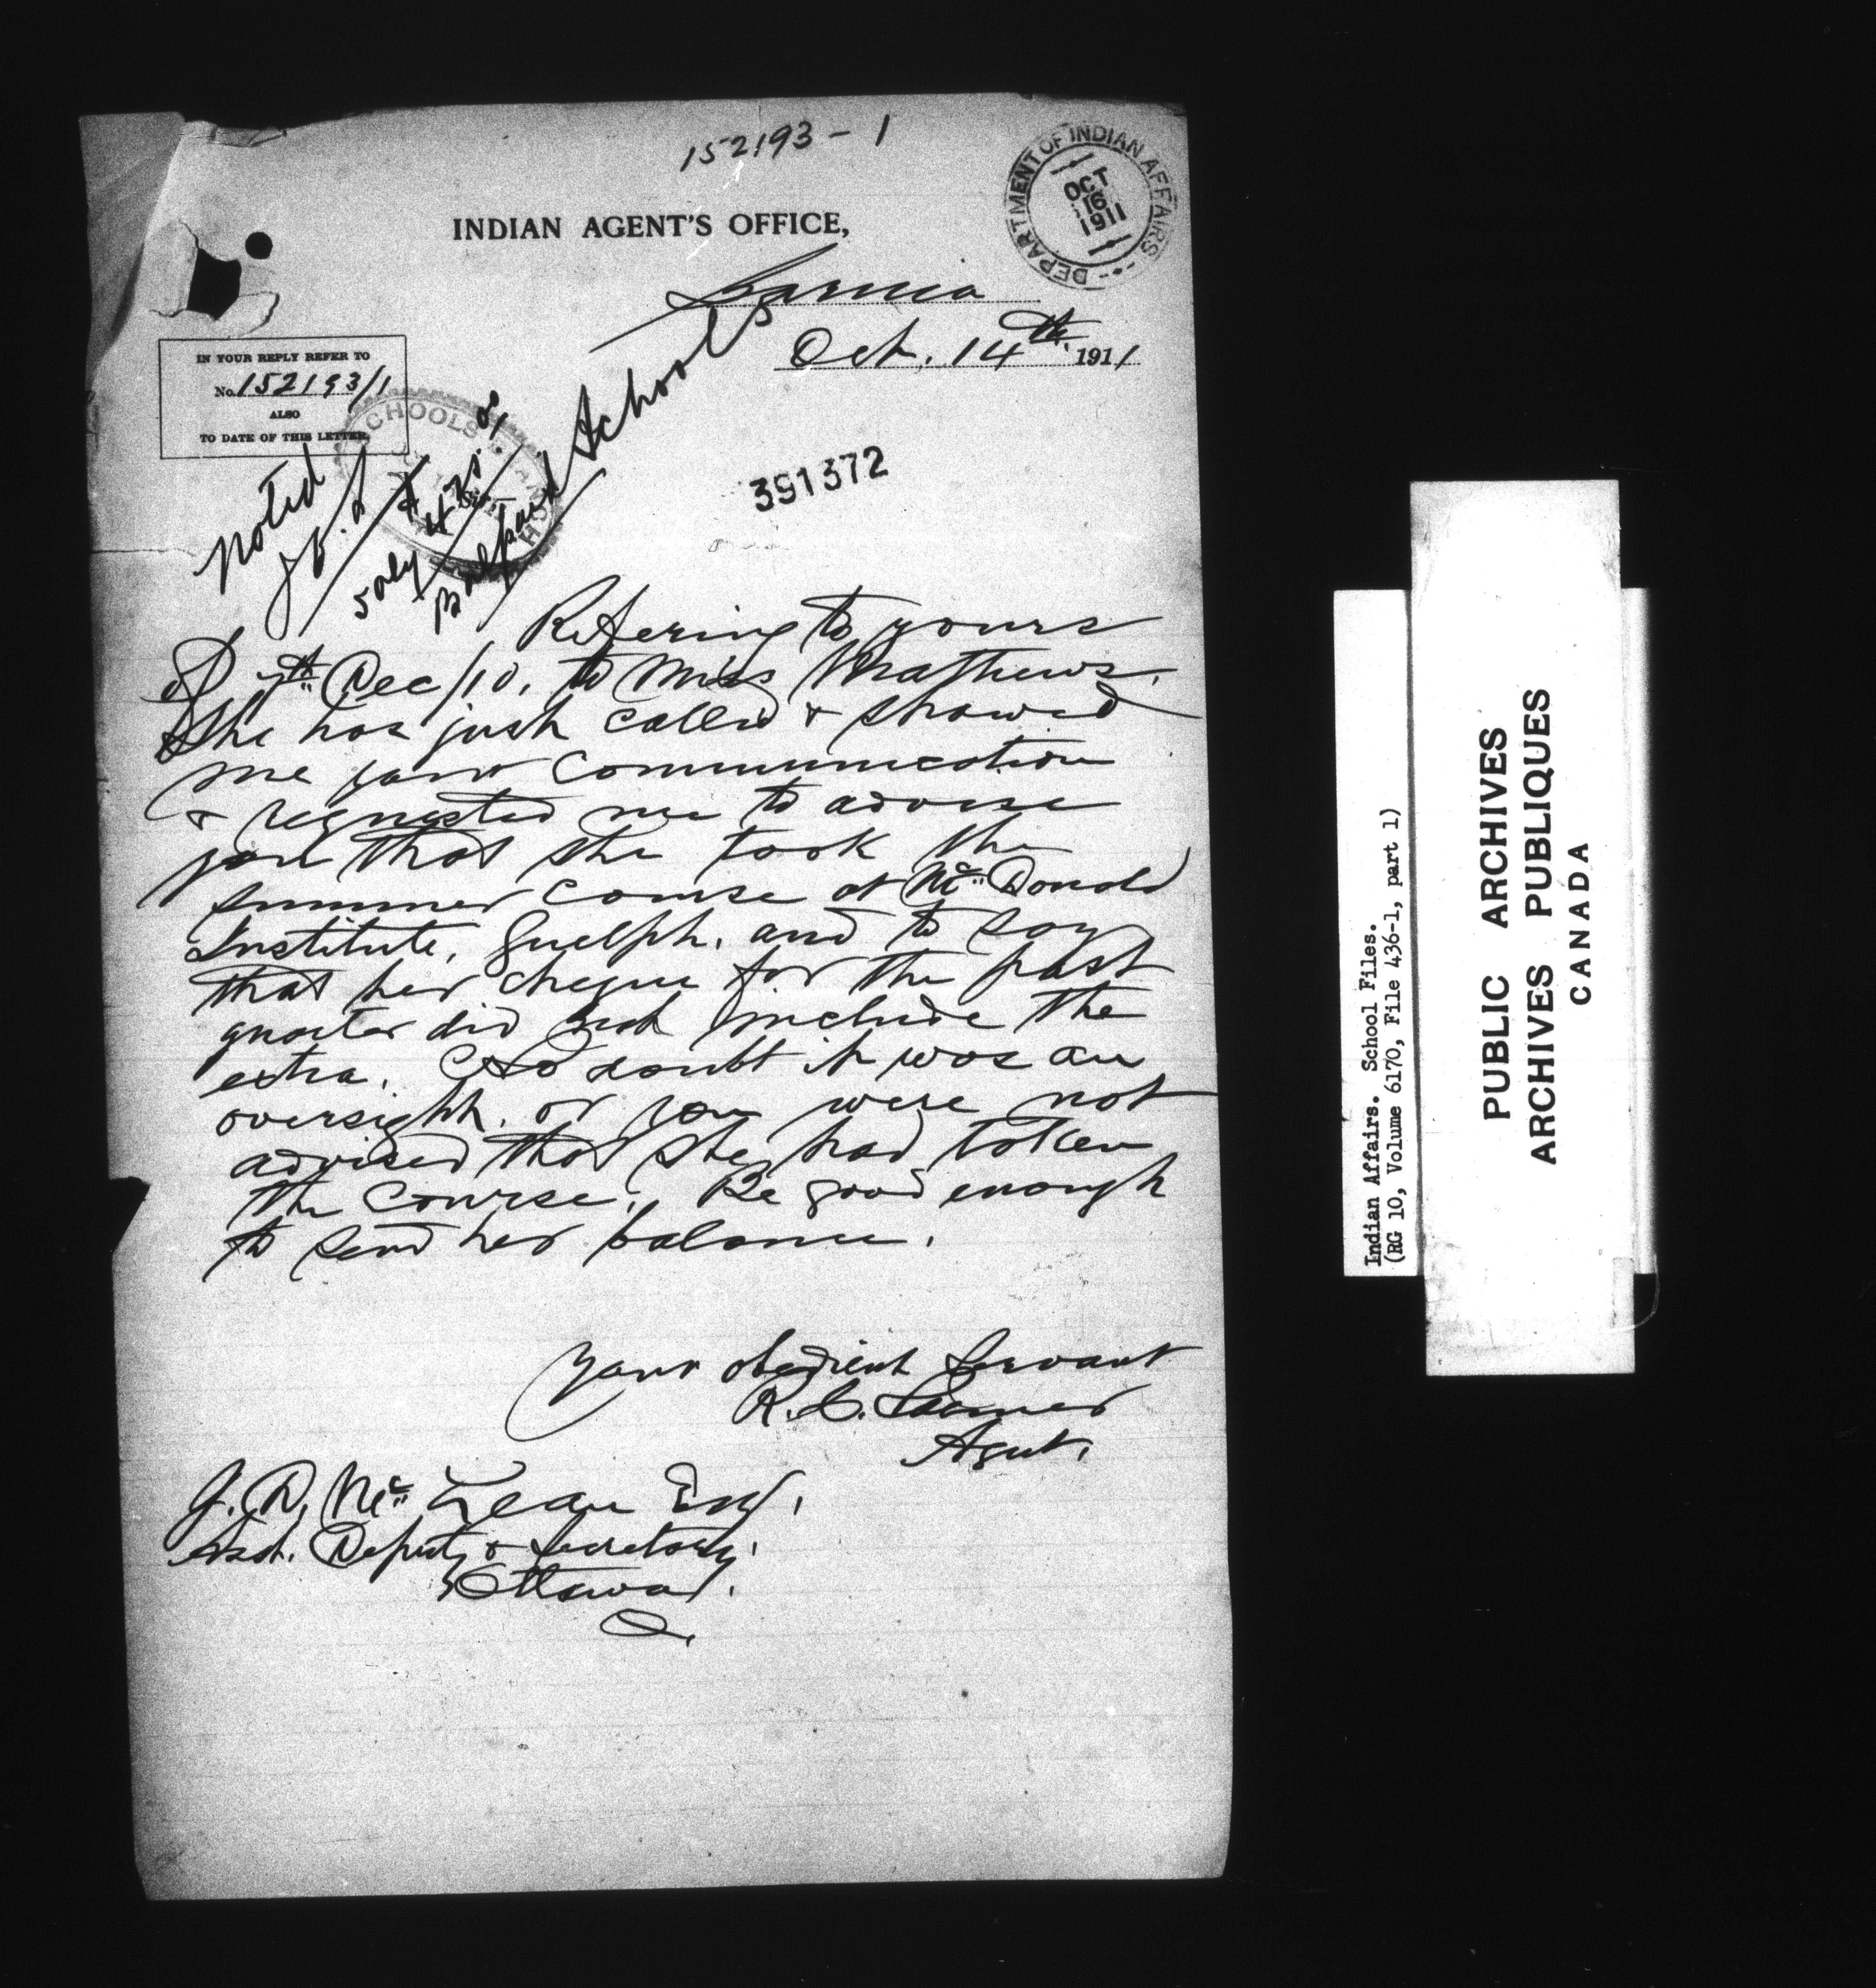 152193-1
DEPARTMENT OF INDIAN AFFAIRS
OCT
16
1911
INDIAN AGENT'S OFFICE,
Sarnia
Oct. 14th 1911
IN YOUR REPLY REFER TO
No. 152193/1
ALSO
TO DATE OF THIS LETTER.
SCHOOLS
Schools
noted
391372
Refering to yours
of 7th Dec/10, to Miss Mathews.
She has just called & showed
me your communication
& requested me to advise
you that she took the
summer course at McDonald
Institute, Guelph, and to say
that her cheque for the past
quarter did not include the
extra. No doubt it was an
oversight, or you were not
advised that she had taken
the course. Be good enough
to send her balance.
Your obedient Servant
R. C.
Agent.
J. D. McLean Esq.
Asst. Deputy & Secretary.
Ottawa.
Indian Affairs. School Files.
(RG 10, Volume 6170, File 436-1, part 1)
PUBLIC ARCHIVES
ARCHIVES PUBLIQUES
CANADA